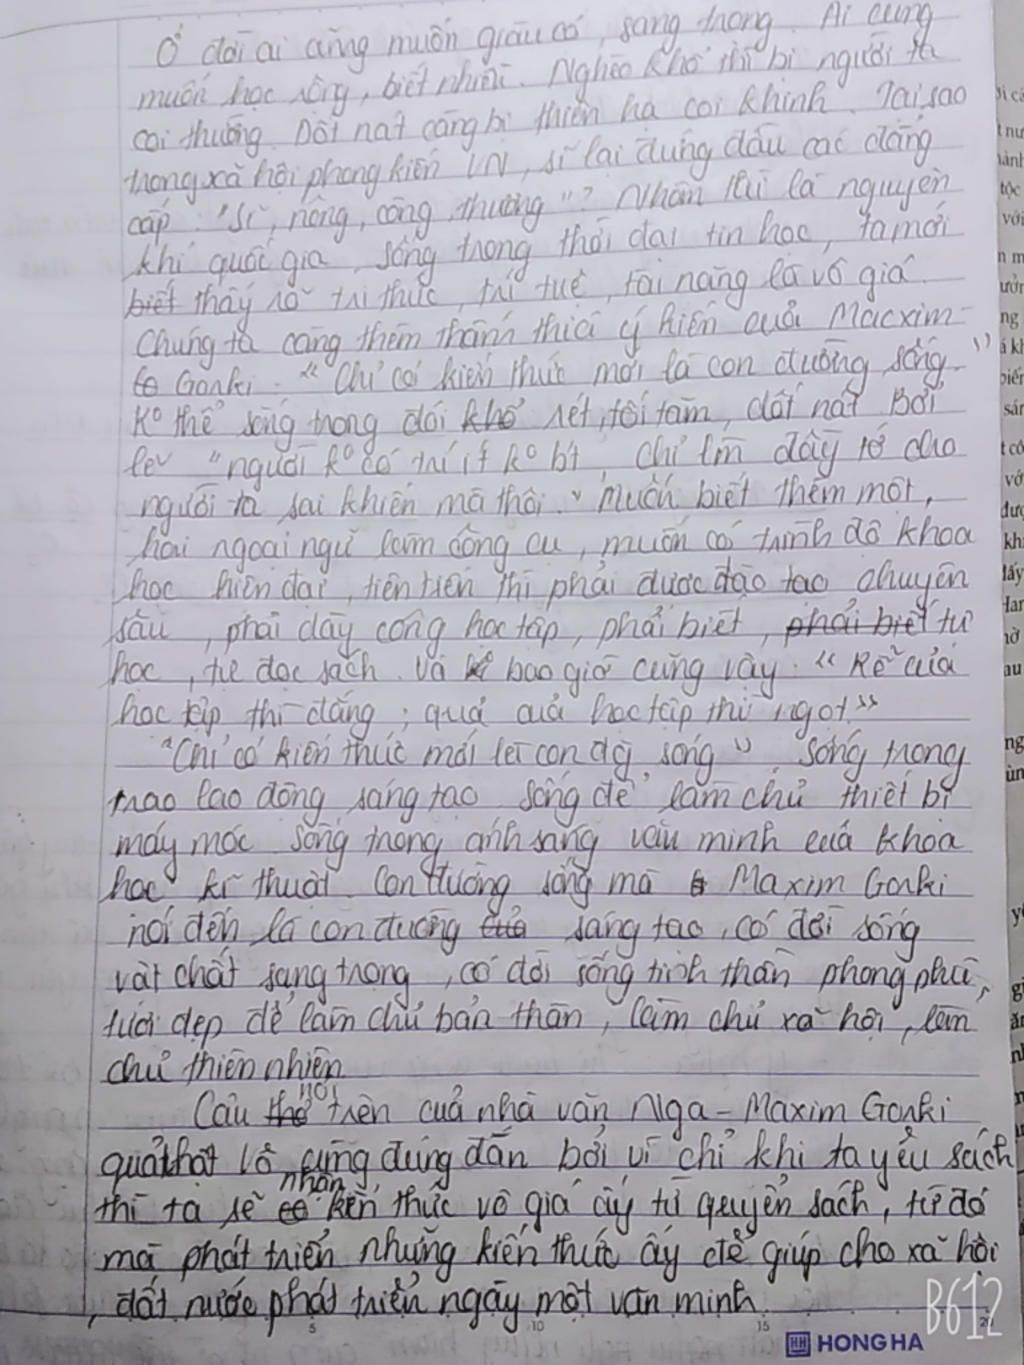 Ở đời ai cũng muốn giàu có, sang trọng. Ai cũng
muốn học rộng, biết nhiều. Nghèo khổ thì bị người ta
coi thường. Dốt nát càng bị thiên hạ coi khinh. Tại sao
trong xã hội phong kiến VN, sĩ lại đứng đầu các đẳng
cấp "Sĩ, nông, công, thương"? Nhân tài là nguyên
khí quốc gia. Sống trong thời đại tin học, ta mới
biết thấy rõ tri thức, trí tuệ, tài năng là vô giá.
Chúng ta càng thêm thấm thía ý kiến của Macxim-
Gorki. "Chỉ có kiến thức mới là con đường sống"
K° thể sống trong đói rét, tối tăm, dốt nát. Bởi
lẽ "người k° có tri it k° bt, chỉ lm đầy tớ cho
người ta sai khiến mà thôi." Muốn biết thêm một,
hai ngoại ngữ làm công cụ, muốn có trình độ khoa
học hiện đại, tiên tiến thì phải được đào tạo chuyên
sâu, phải dày công học tập, phải biết, phải biết tự
học, tự đọc sách. Và bao giờ cũng vậy. "Rễ của
học tập thì đắng; quả của học tập thì ngọt"
"Chỉ có kiến thức mới là con đg sống". Sống trong
lao động sáng tạo. Sống để làm chủ thiết bị
máy móc. Sống trong ánh sáng văn minh cuả khoa
học kĩ thuật. Con đường sống mà Maxim Gorki
nói đến là con đường sáng tạo, có đời sống
vật chất sang trọng, có đời sống tinh thần phong phú,
tươi đẹp để làm chủ bản thân, làm chủ xã hội, làm
chủ thiên nhiên
Câu nói trên cuả nhà văn Nga - Maxim Gorki
quả thật vô cùng đúng đắn bởi vì chỉ khi ta yêu sách
thì ta sẽ nhận kiến thức vô giá ấy từ quyển sách, từ đó
mà phát triển những kiến thức ấy để giúp cho xã hội
, đất nước phát triển ngày một văn minh
5 10 15 20
HONG HA
B612